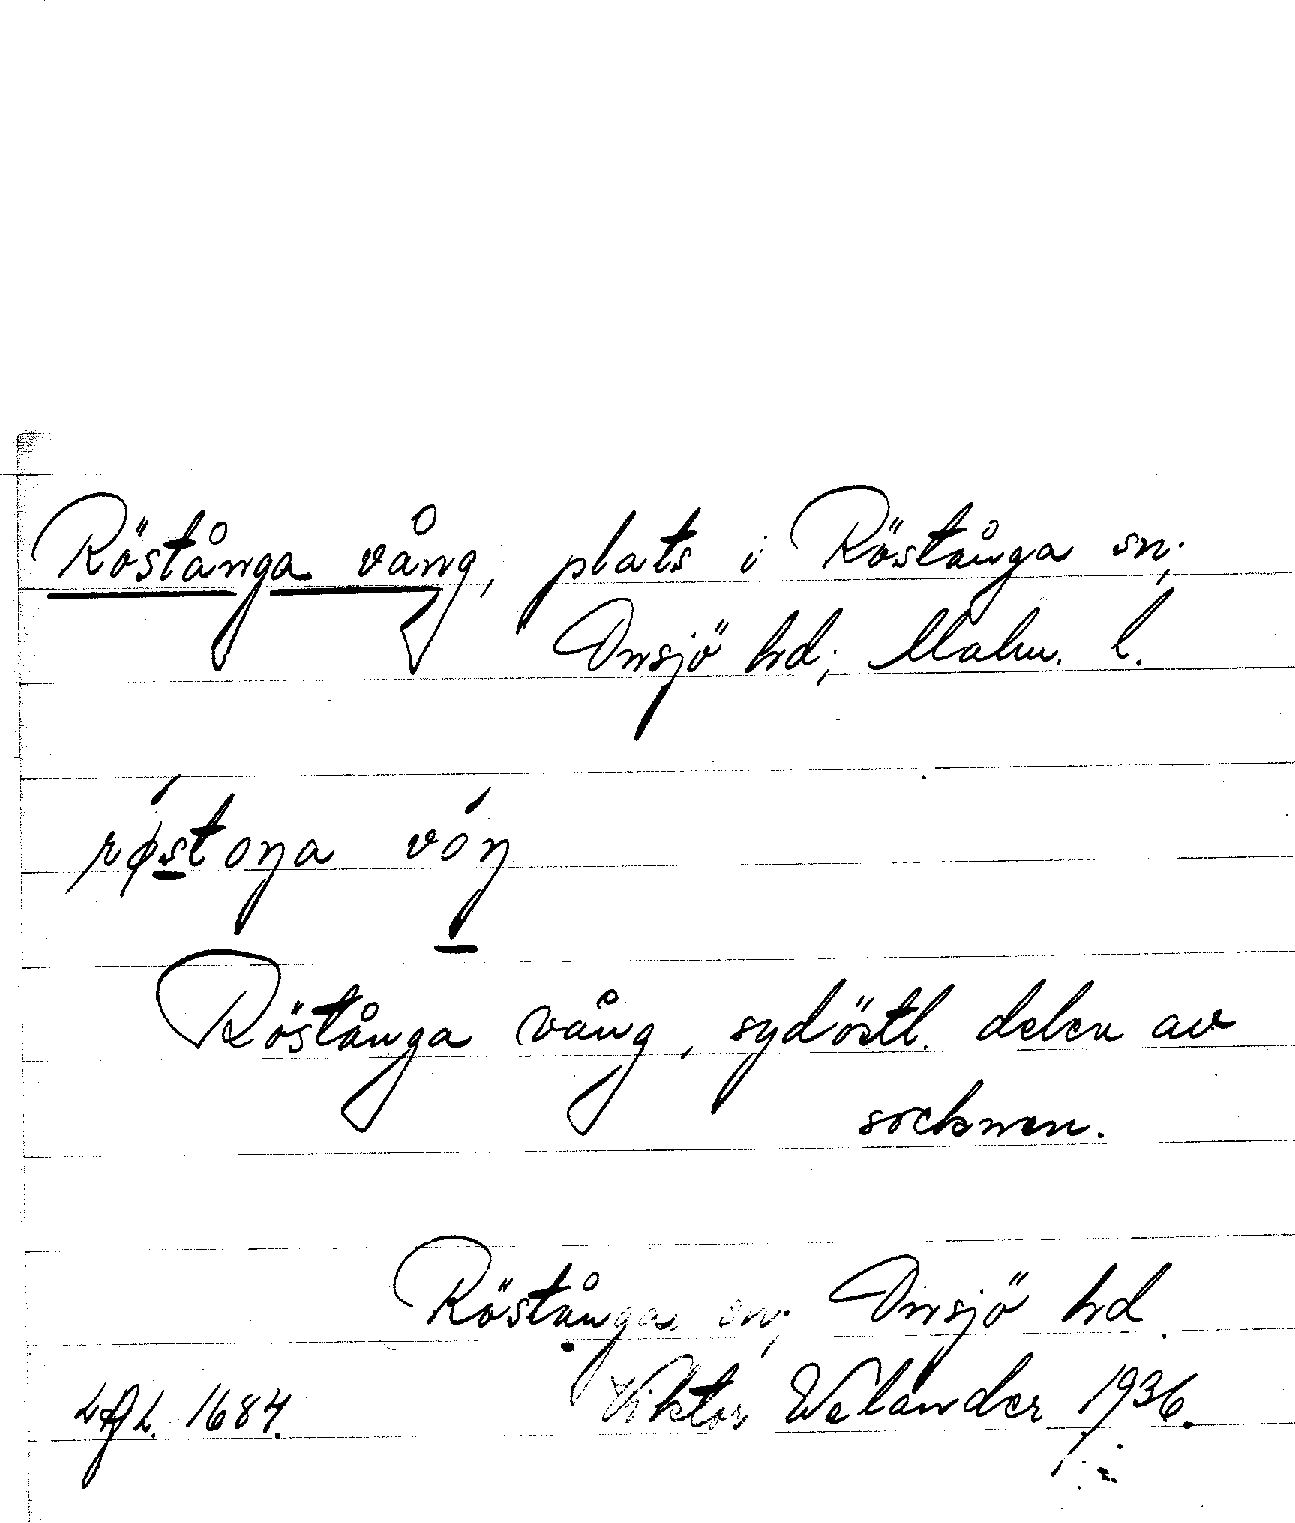 Röstånga vång, plats i Röstånga sn;
Onsjö hd; Malm. l.
røstoŋa vóŋ
Röstånga vång, sydöstl. delen av
socknen.
Röstånga sn; Onsjö hd.
Viktor Welander 1936.
1684.